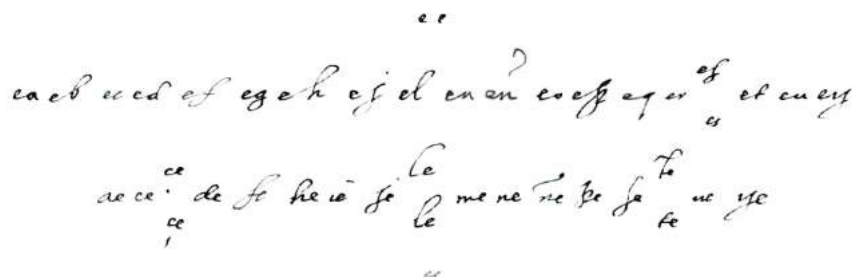 e e
ea eb ec ed ef eg eh ej el em en eo ep eq er es es et eu ey
ae ce ce çe de fe he ie je le le me ne ñe pe se te te ue ye